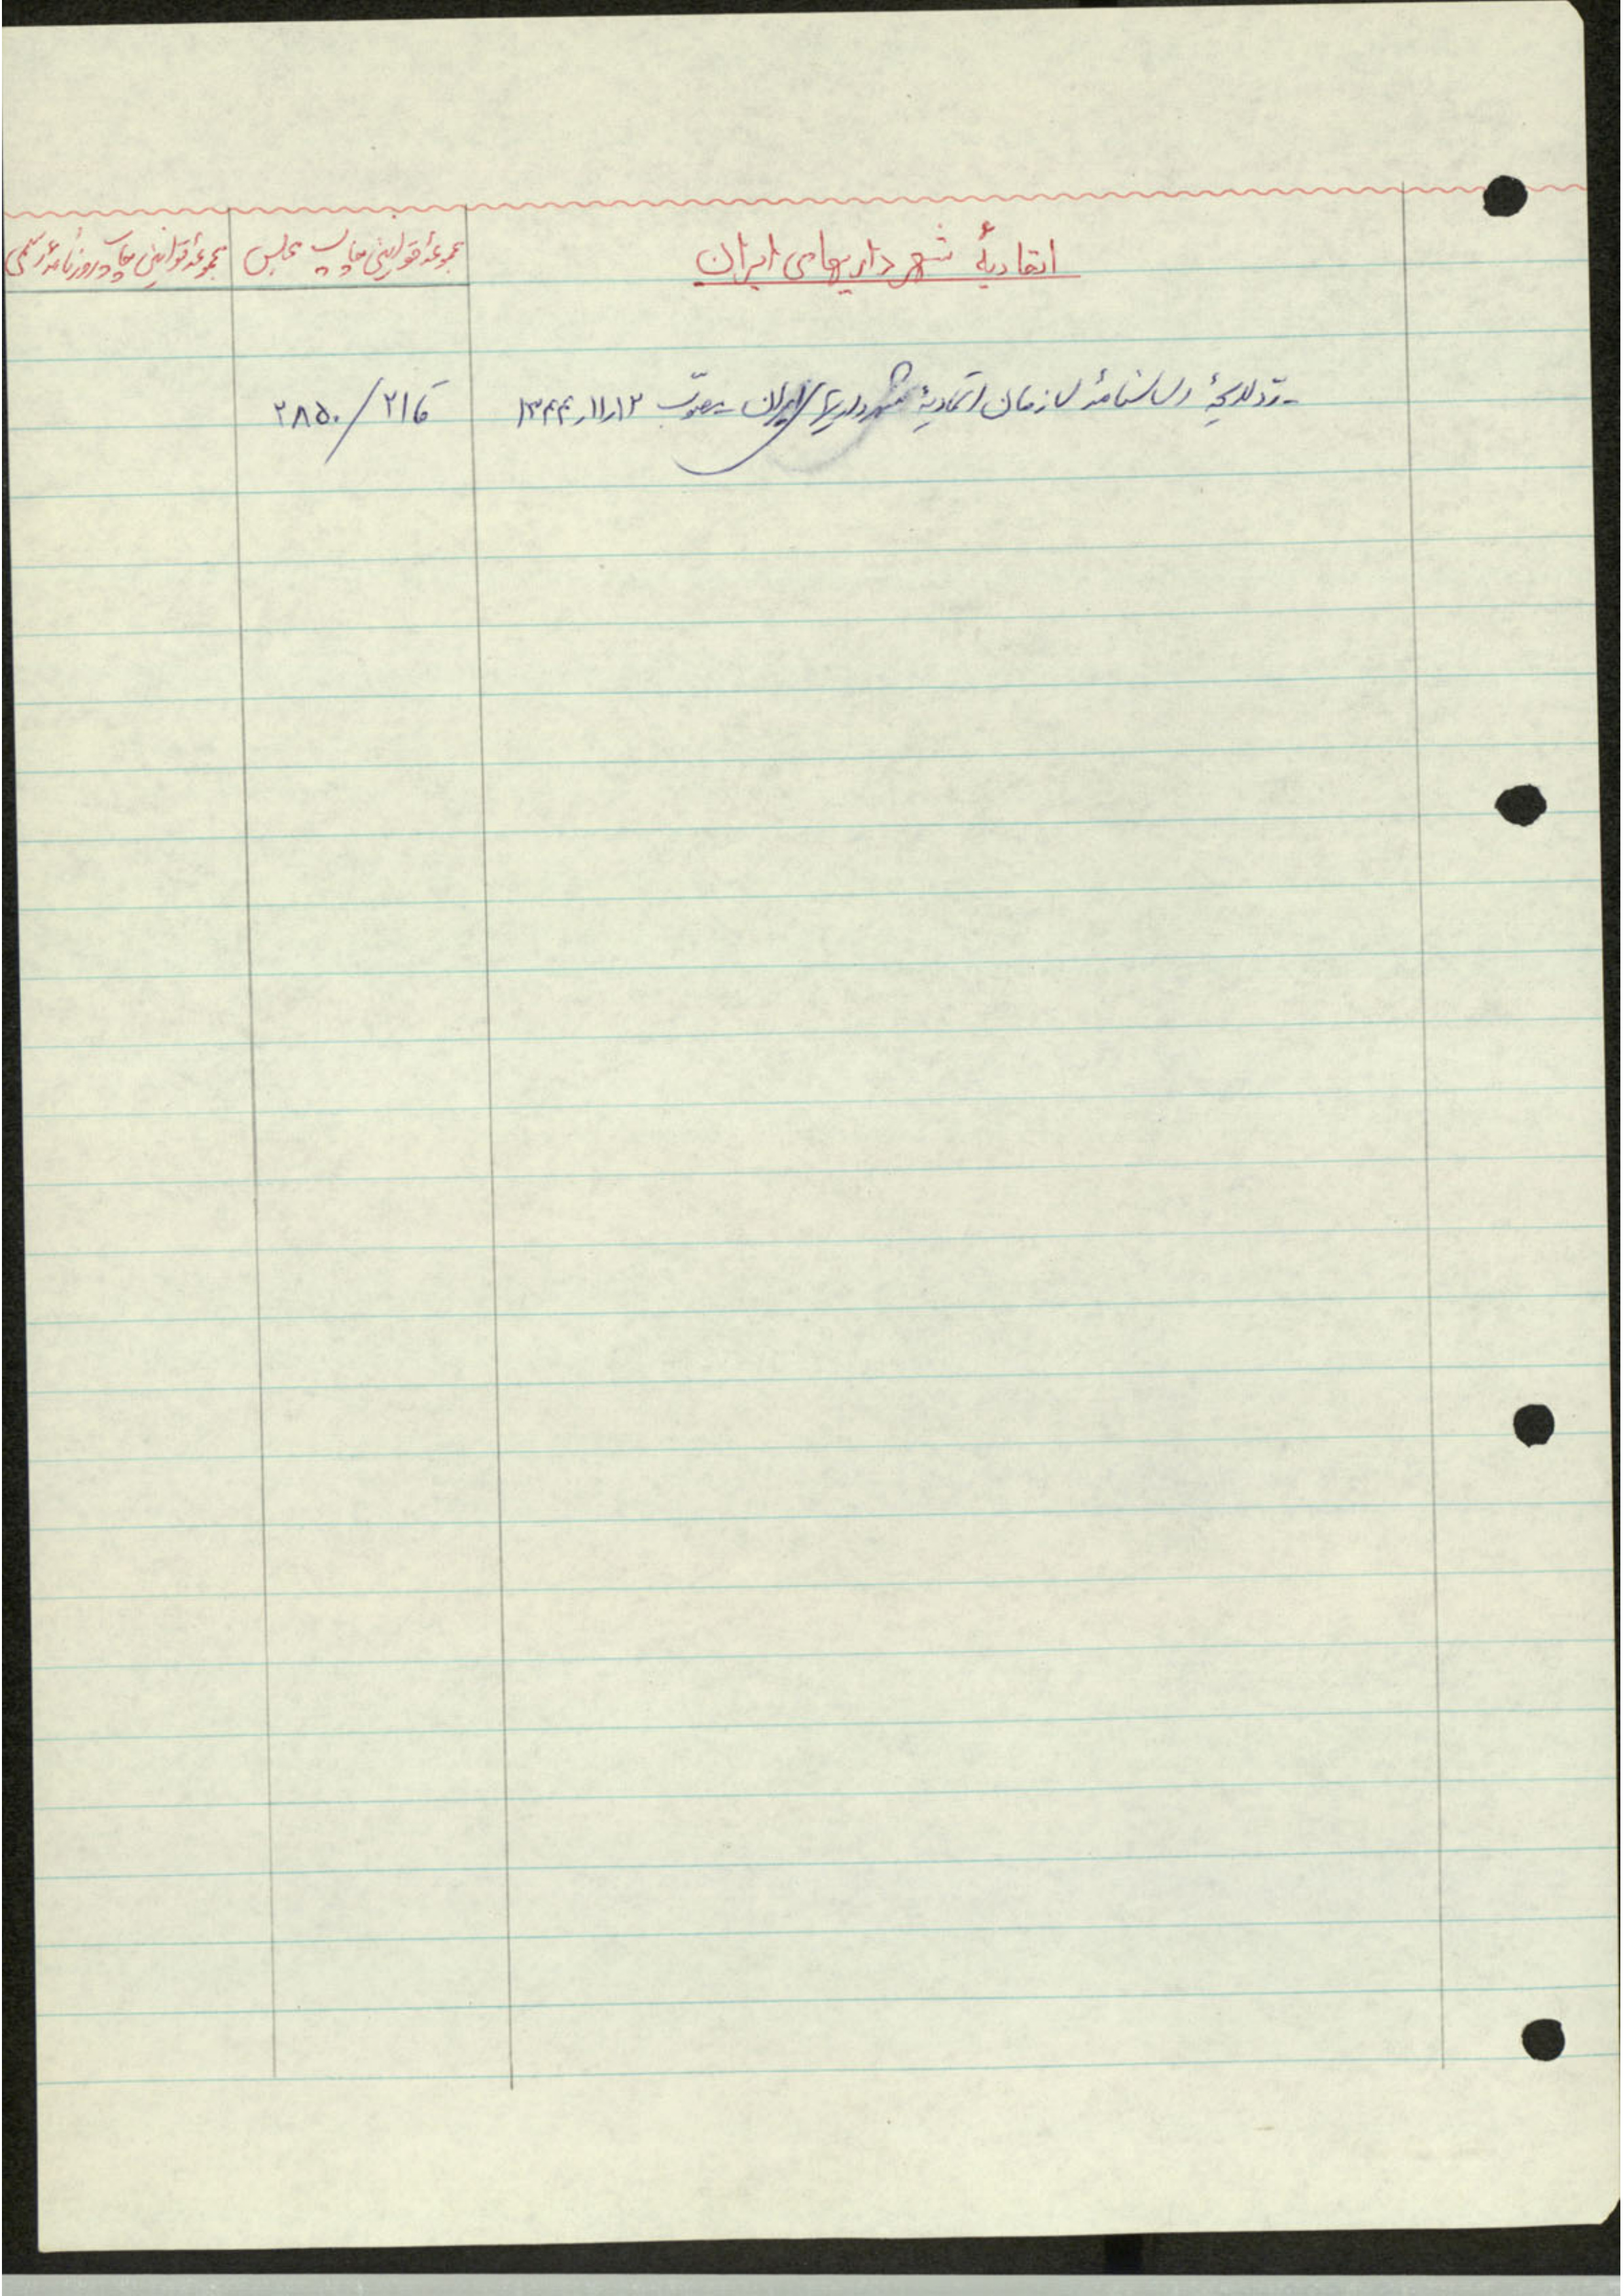 اتحادیهٔ شهرداریهای ایران
مجموعهٔ قوانین چاپ مجلس
مجموعهٔ قوانین چاپ روزنامهٔ رسمی
- ردّ لایحهٔ اساسنامهٔ سازمان اتحادیهٔ شهرداریهای ایران مصوّب ۱۳ر۱۱ر۱۳۴۴
۲۸۵۰/۲۱۶